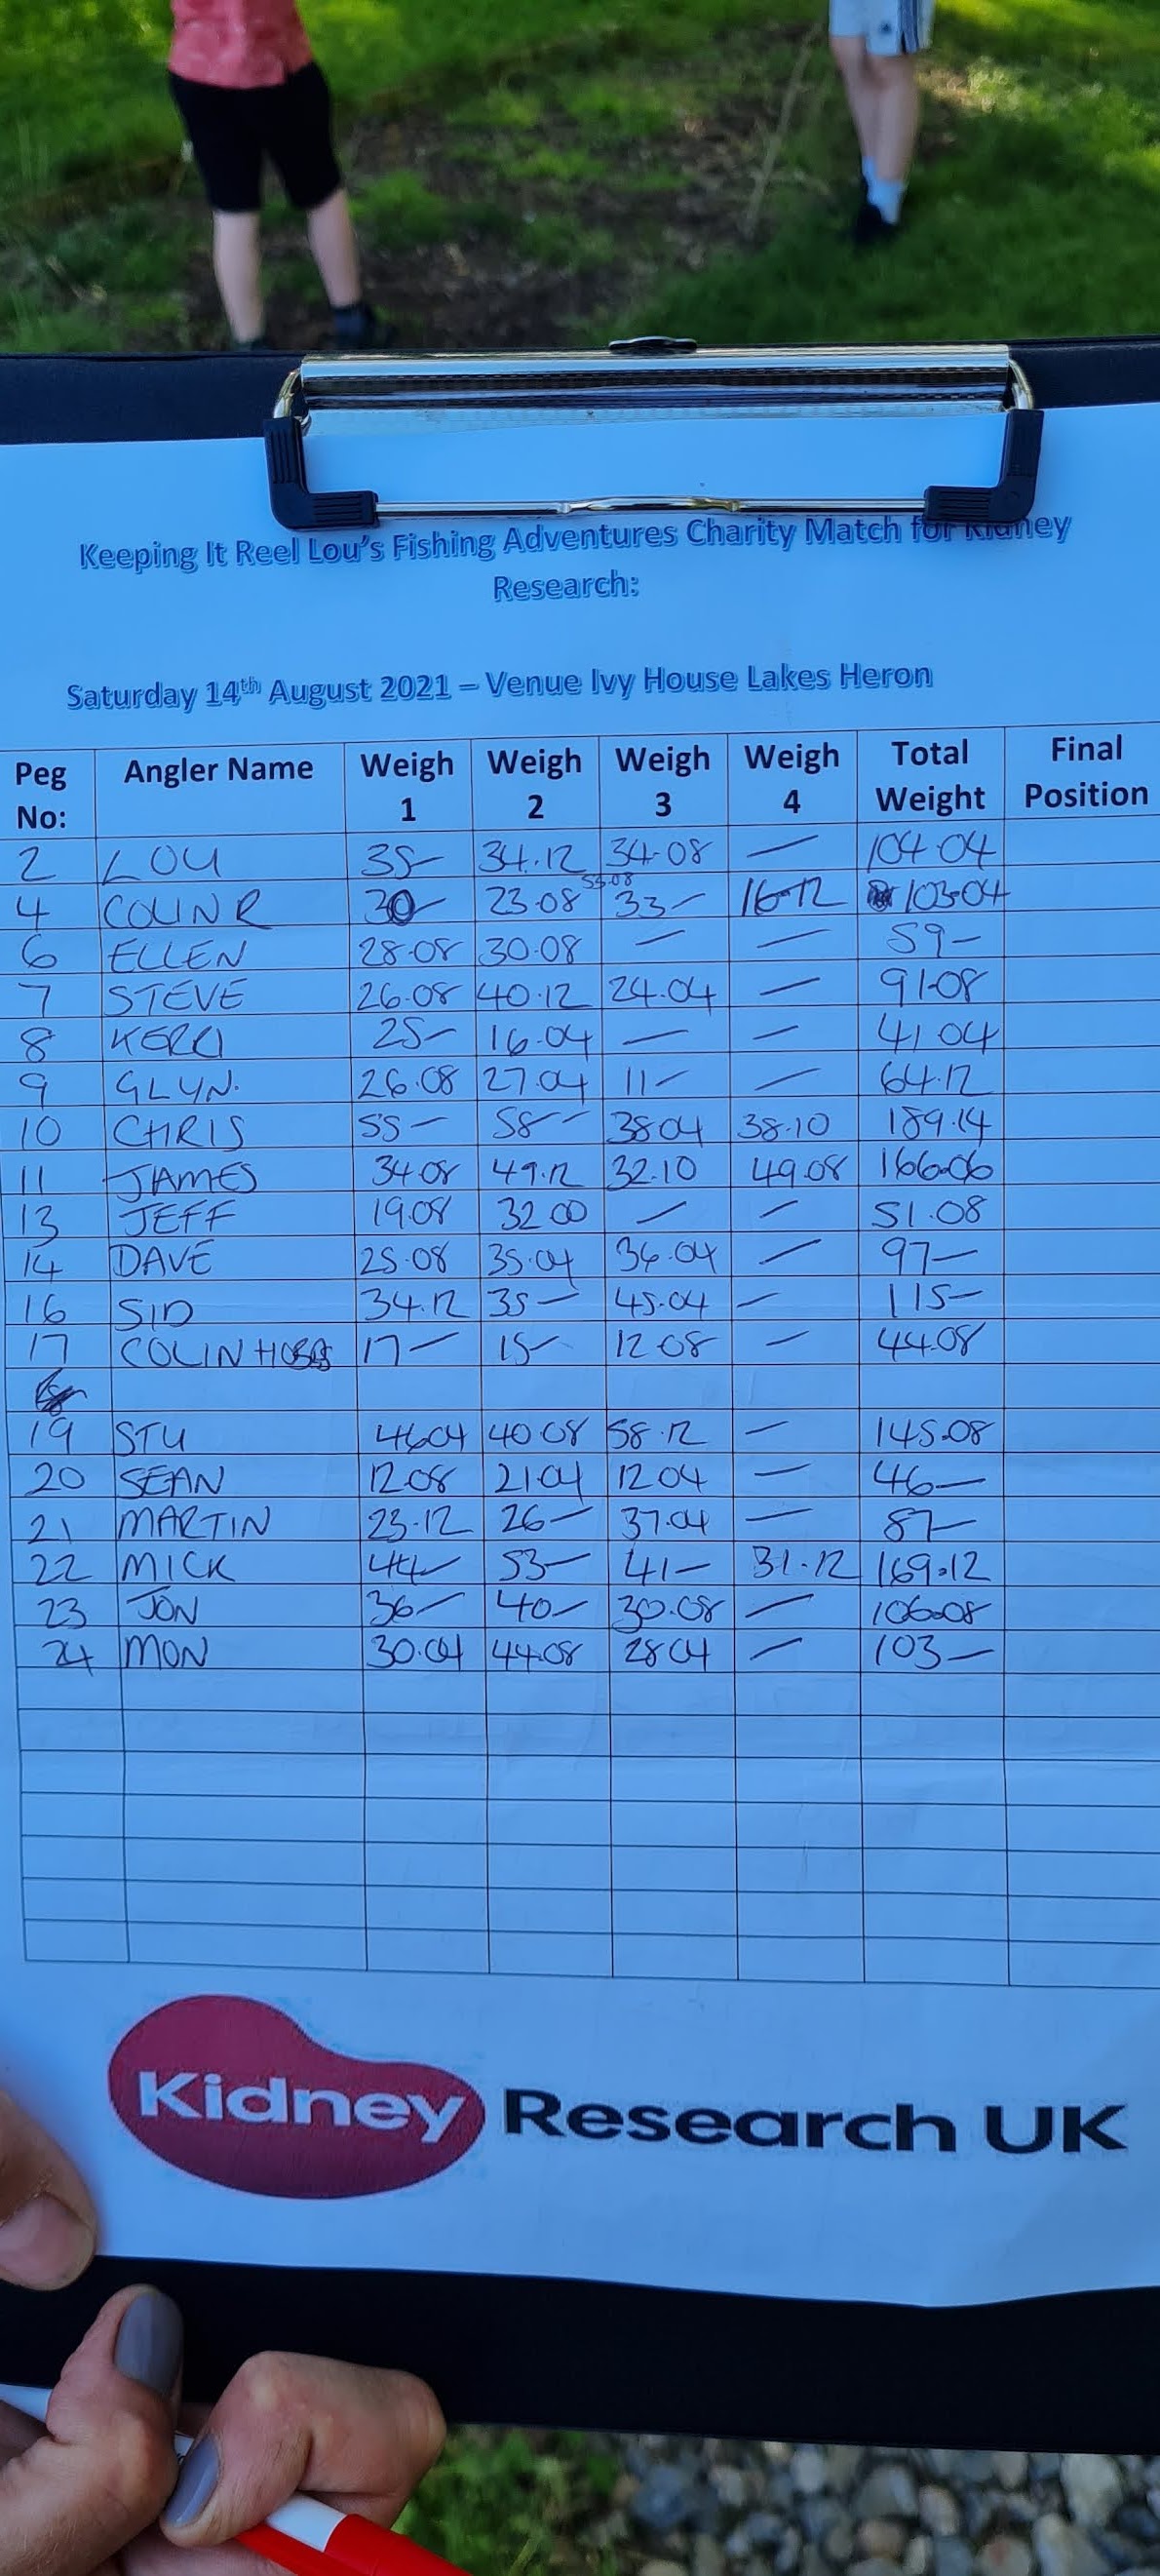 Keeping It Reel Lou's Fishing Adventures Charity Match for Kidney
Research:
Saturday 14th August 2021 – Venue Ivy House Lakes Heron
Peg No: Angler Name Weigh 1 Weigh 2 Weigh 3 Weigh 4 Total Weight Final Position
2 LOU 35- 34.12 34-08 — 104.04
4 COLIN R 30- 23.08 53.08 33- 16-12 103-04
6 ELLEN 28.08 30.08 — — 59-
7 STEVE 26.08 40.12 24.04 — 91.08
8 KERRI 25- 16.04 — — 41.04
9 GLYN. 26.08 27.04 11- — 64.12
10 CHRIS 55- 58- 38.04 38.10 189.14
11 JAMES 34.08 49.12 32.10 49.08 166.06
13 JEFF 19.08 32.00 — — 51.08
14 DAVE 25.08 35.04 36.04 — 97-
16 SID 34.12 35- 45.04 — 115-
17 COLIN HOBBS 17- 15- 12.08 — 44.08
19 STU 46.04 40.08 58.12 — 145.08
20 SEAN 12.08 21.04 12.04 — 46-
21 MARTIN 23.12 26- 37.04 — 87-
22 MICK 44- 53- 41- 31.12 169.12
23 JON 36- 40- 30.08 — 106.08
24 MON 30.04 44.08 28.04 — 103-
Kidney Research UK